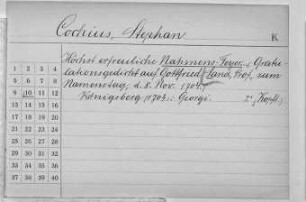 Cochius, Stephan
K
Höchst erfreuliche Nahmens-Feyer. Gratu-
lationsgedicht auf Gottfried Sand, Prof., zum
Namenstag, d. 8. Nov. 1704.
Königsberg (1704): Georgi. 2° (Kopft.)
1 2 3 4
5 6 7 8
9 10 11 12
13 14 15 16
17 18 19 20
21 22 23 24
25 26 27 28
29 30 31 32
33 34 35 36
37 38 39 40